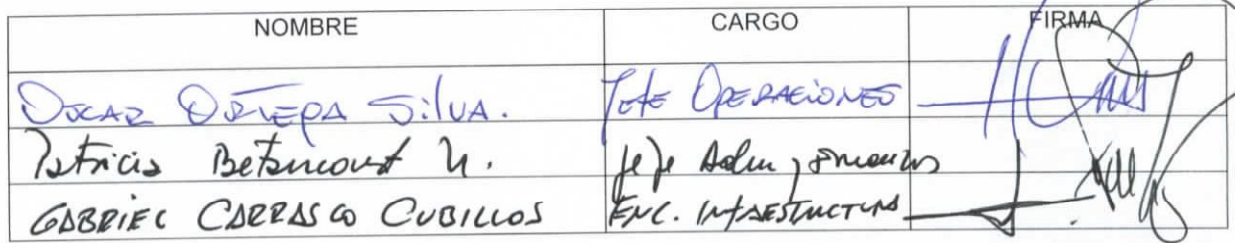 NOMBRE CARGO FIRMA
Oscar Ortega Silva. Jefe Operaciones
Patricio Betancourt U. Jefe Adm y Finanzas
GABRIEL CARRASCO CUBILLOS ENC. INFRAESTRUCTURA